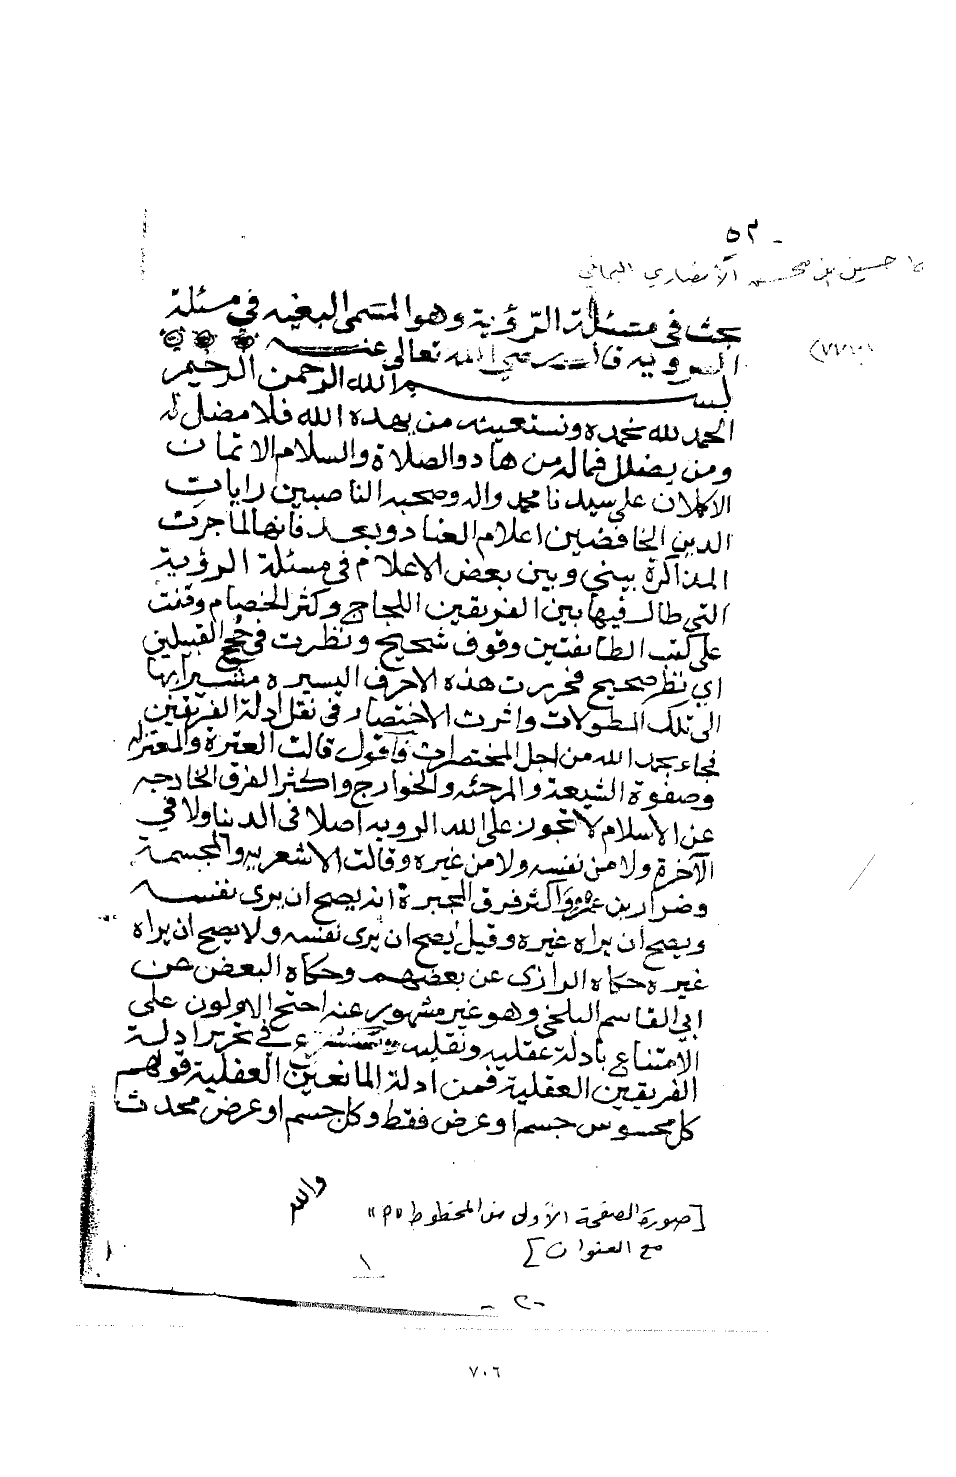 - ٥٢
حسين بن محسن الأنصاري اليماني
بحث فى مسئلة الرؤية وهو المسمى البغيه في مسئلة
الرويه رضي الله تعالى عنه
بسم الله الرحمن الرحيم
الحمد لله نحمده ونستعينه من يهده الله فلا مضل له
ومن يضلل فماله من هاد والصلاة والسلام الاتمان
الاكملان على سيدنا محمد واله وصحبه الناصبين رايات
الدين الخافضين اعلام العناد وبعد فانها لما جرت
المذاكرة بيني وبين بعض الاعلام في مسئلة الرؤية
التي طال فيها بين الفريقين اللجاج وكثر الخصام وقفت
على كتب الطائفتين وقوف شحيح ونظرت في حجج القبيلين
اي نظر صحيح فحررت هذه الاحرف اليسيره مشيرا بها
الى تلك المطولات واثرت الاختصار فى نقل ادلة الفريقين
فجاء بحمد الله من اجل المختصرات فاقول قالت العترة والمعتزله
وصفوة الشيعة والمرجئه والخوارج واكثر الفرق الخارجه
عن الاسلام لا تجوز على الله الرويه اصلا فى الدنيا ولا في
الآخرة ولا من نفسه ولا من غيره وقالت الاشعريه والمجسمة
وضرار بن عمرو واكثر فرق الجبرة انه يصح ان يرى نفسه
ويصح ان يراه غيره وقيل يصح ان يرى نفسه ولا يصح ان يراه
غيره حكاه الرازى عن بعضهم وحكاه البعض عن
ابي القاسم البلخي وهو غير مشهور عنه احتج الاولون على
الامتناع بادلة عقليه ونقليه في تحرير ادلة
الفريقين العقلية فمن ادلة المانعين العقلية قولهم
كل محسوس جسم او عرض فقط وكل جسم او عرض محدث
والله
[صورة الصفحة الأولى من المخطوط "م"
مع العنوان]
١
- ٢ -
٧٠٦